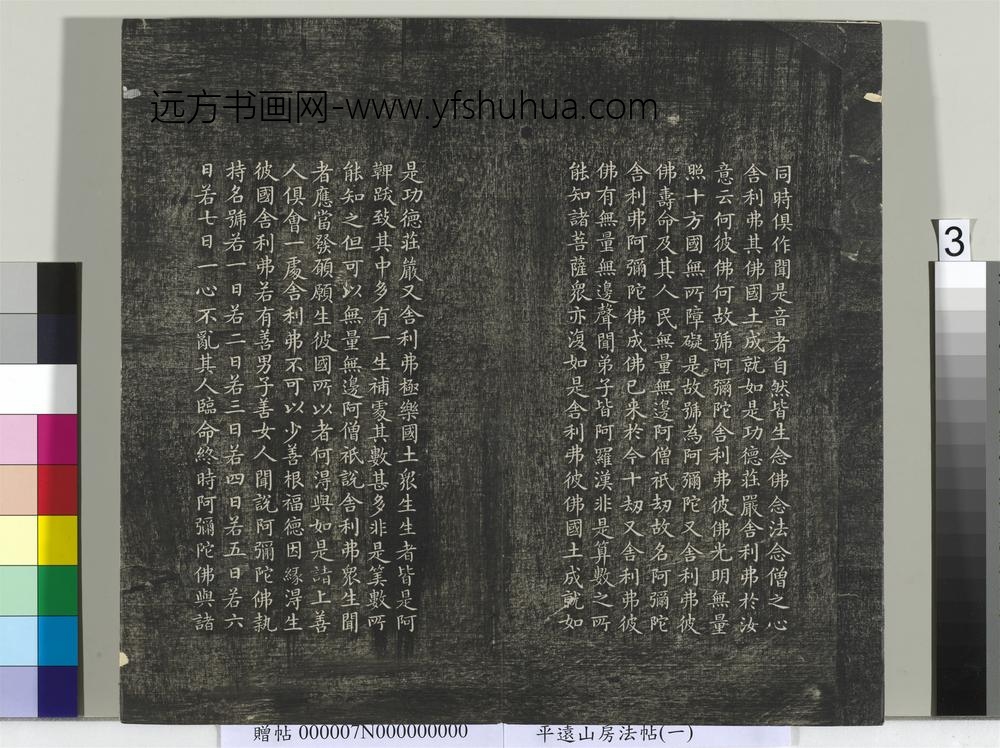 远方书画网-www.yfshuhua.com
3
同時俱作聞是音者自然皆生念佛念法念僧之心
舍利弗其佛國土成就如是功德莊嚴舍利弗於汝
意云何彼佛何故號阿彌陀舍利弗彼佛光明無量
照十方國無所障礙是故號為阿彌陀又舍利弗彼
佛壽命及其人民無量無邊阿僧祇劫故名阿彌陀
舍利弗阿彌陀佛成佛已来於今十劫又舍利弗彼
佛有無量無邊聲聞弟子皆阿羅漢非是算數之所
能知諸菩薩眾亦復如是舍利弗彼佛國土成就如
是功德莊嚴又舍利弗極樂國土眾生生者皆是阿
鞞跋致其中多有一生補處其數甚多非是筭數所
能知之但可以無量無邊阿僧祇說舍利弗眾生聞
者應當發願願生彼國所以者何得與如是諸上善
人俱會一處舍利弗不可以少善根福德因緣得生
彼國舍利弗若有善男子善女人聞說阿彌陀佛執
持名號若一日若二日若三日若四日若五日若六
日若七日一心不亂其人臨命終時阿彌陀佛與諸
贈帖 000007N000000000
平遠山房法帖(一)